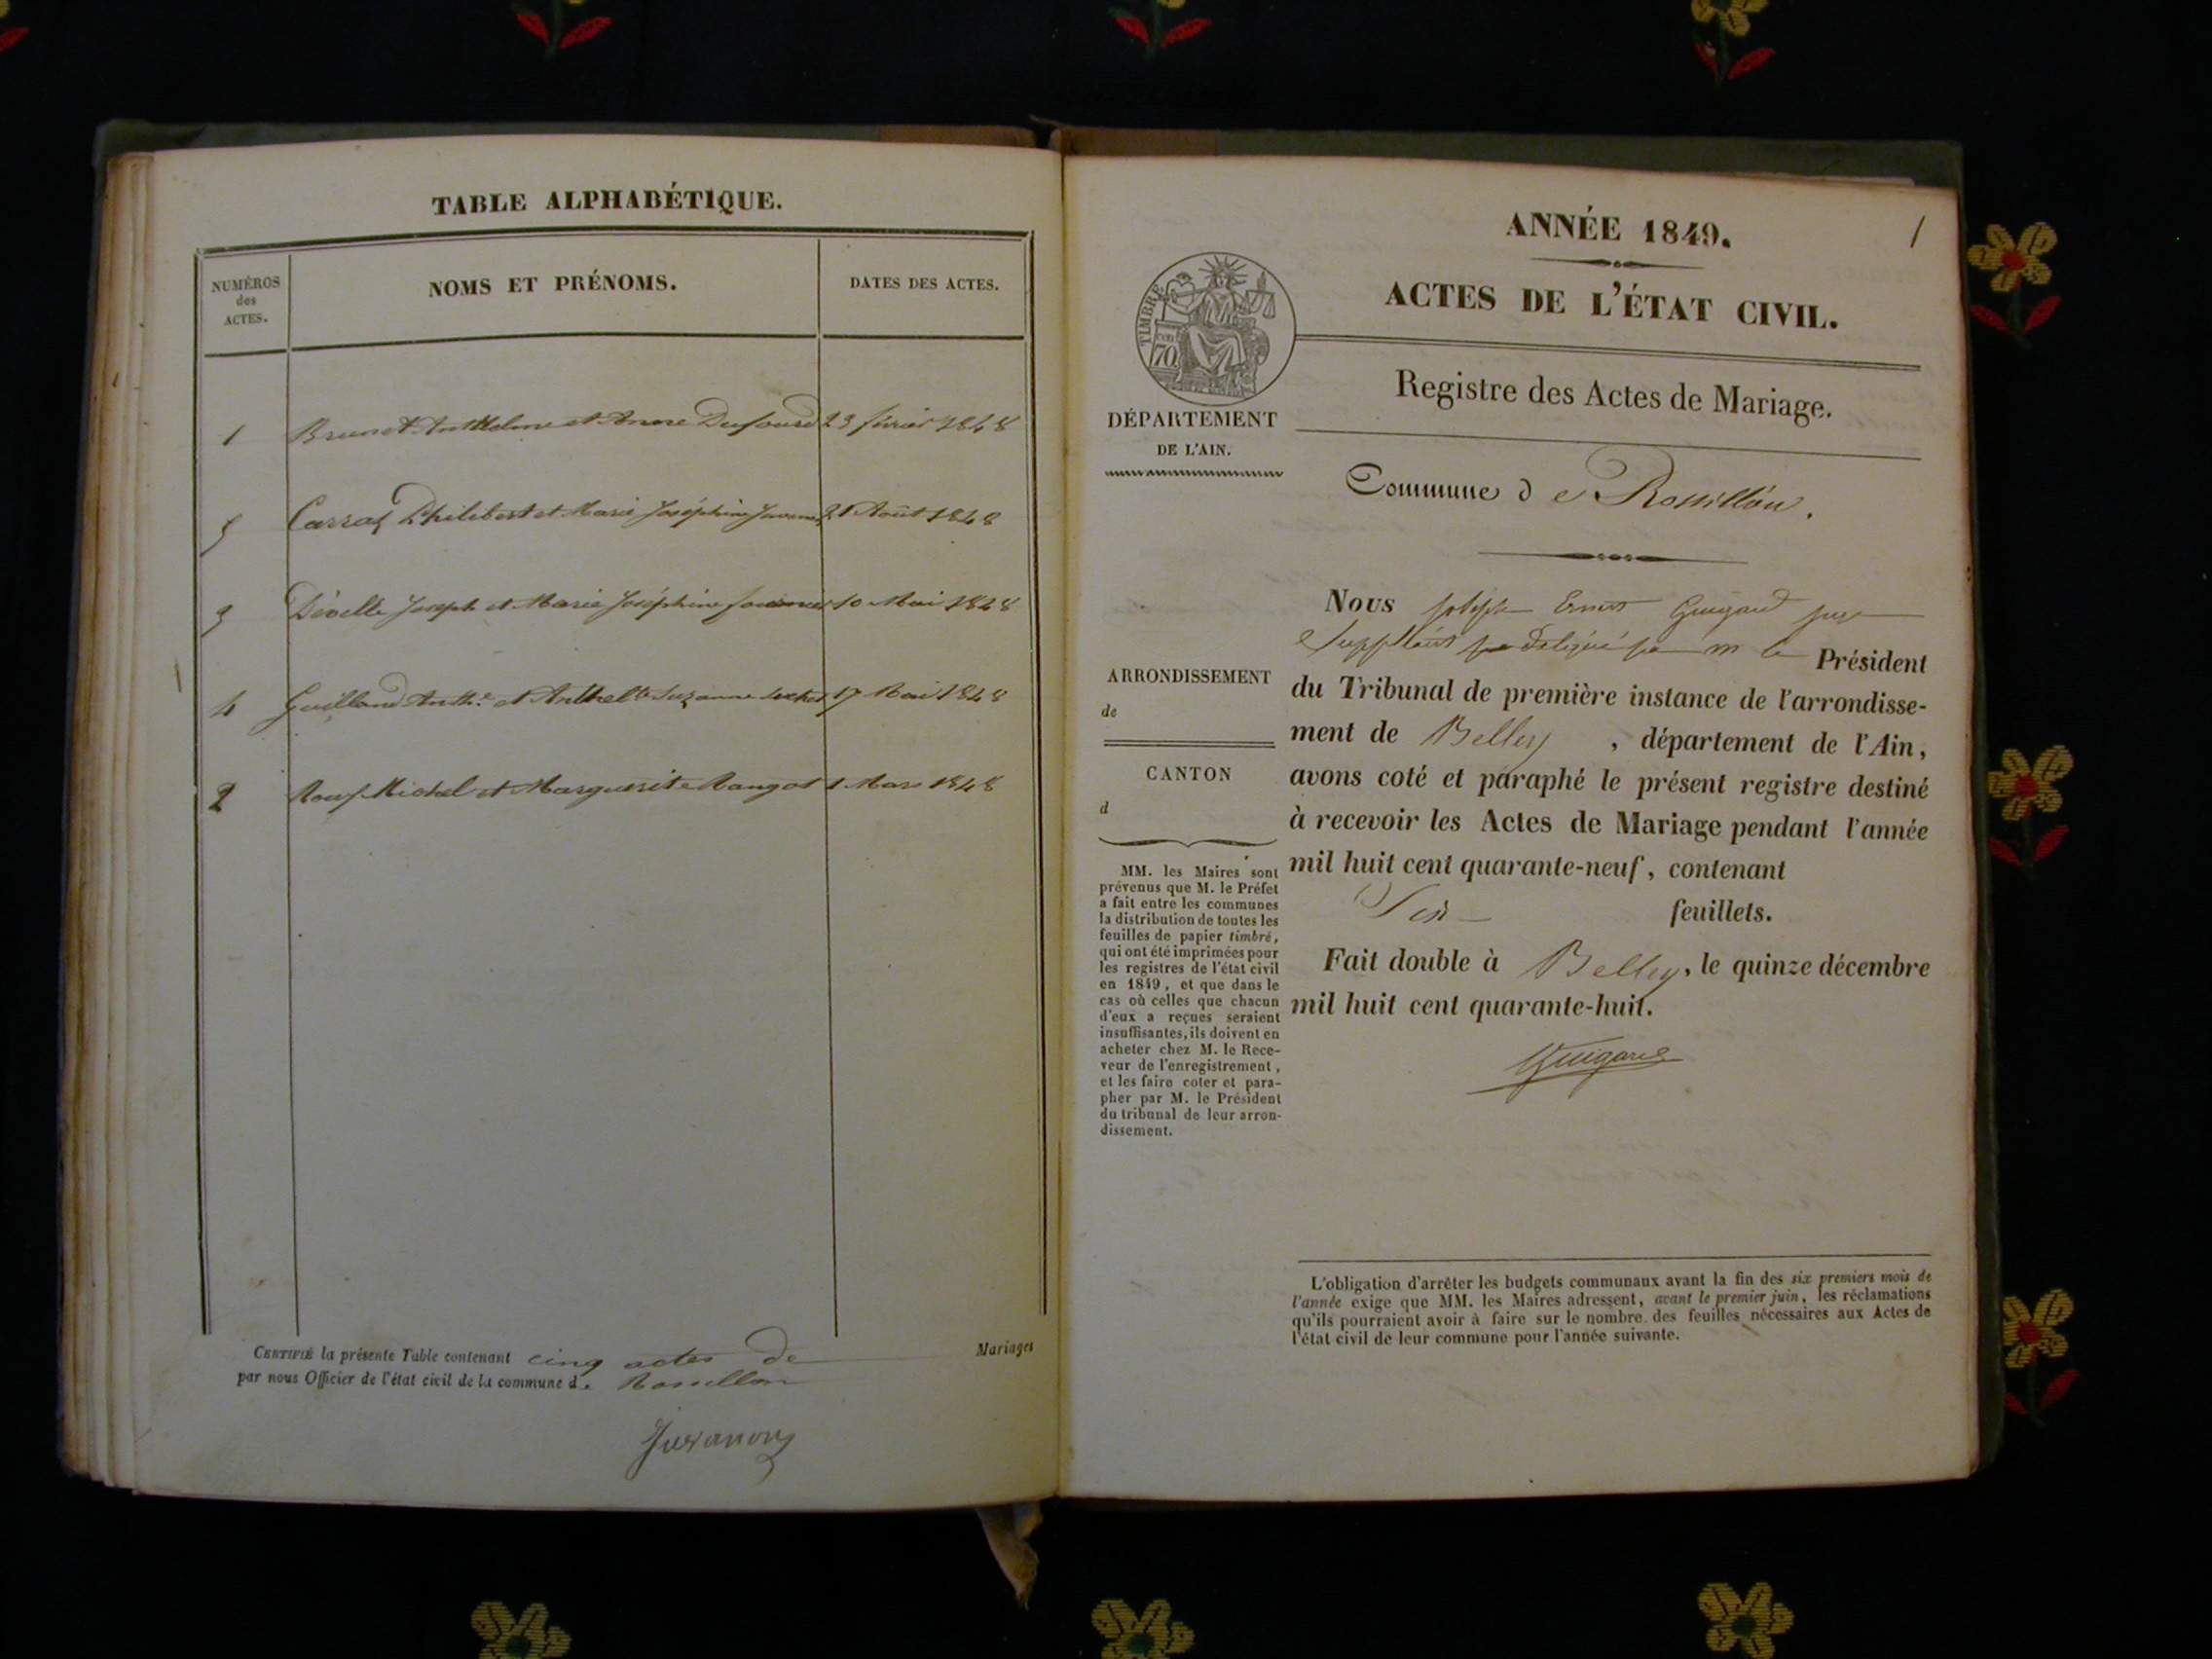 TABLE ALPHABÉTIQUE.
NUMÉROS
des
ACTES.
NOMS ET PRÉNOMS.
DATES DES ACTES.
1 Brunet Anthelme et Anne Dufour 23 février 1848
5 Carraz Philibert et Marie Joséphine 21 Août 1848
3 Joseph et Marie Joséphine 10 Mai 1848
4 Guilland Anth.e et Anthel.te Suzanne 17 Mai 1848
2 Roux Michel et Marguerite Mangot 1 Mars 1848
CERTIFIÉ la présente Table contenant cinq actes de Mariages
par nous Officier de l'état civil de la commune de Rossillon
1
ANNÉE 1849.
ACTES DE L'ÉTAT CIVIL.
TIMBRE
70
DÉPARTEMENT
DE L'AIN.
Registre des Actes de Mariage.
Commune de Rossillon.
ARRONDISSEMENT
de
CANTON
d
MM. les Maires sont
prévenus que M. le Préfet
a fait entre les communes
la distribution de toutes les
feuilles de papier timbré,
qui ont été imprimées pour
les registres de l'état civil
en 1849, et que dans le
cas où celles que chacun
d'eux a reçues seraient
insuffisantes, ils doivent en
acheter chez M. le Rece-
veur de l'enregistrement,
et les faire coter et para-
pher par M. le Président
du tribunal de leur arron-
dissement.
Nous Joseph Ernest Guigard juge
Suppléant délégué par M le Président
du Tribunal de première instance de l'arrondisse-
ment de Belley, département de l'Ain,
avons coté et paraphé le présent registre destiné
à recevoir les Actes de Mariage pendant l'année
mil huit cent quarante-neuf, contenant
Six feuillets.
Fait double à Belley, le quinze décembre
mil huit cent quarante-huit.
Guigard
L'obligation d'arrêter les budgets communaux avant la fin des six premiers mois de
l'année exige que MM. les Maires adressent, avant le premier juin, les réclamations
qu'ils pourraient avoir à faire sur le nombre des feuilles nécessaires aux Actes de
l'état civil de leur commune pour l'année suivante.